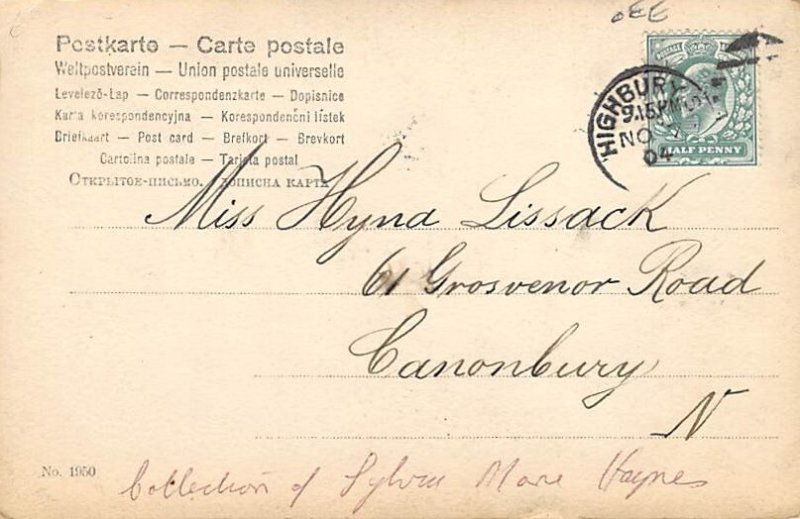 Postkarte — Carte postale
Weltpostverein — Union postale universelle
Levelező-Lap — Correspondenzkarte — Dopisnice
Karta korespondencyjna — Korespondenční lístek
Briefkaart — Post card — Brefkort — Brevkort
Cartolina postale — Tarjeta postal
Открытое-письмо. Дописна карта
HIGHBURY
9.15PM
NO
04
HALF PENNY
Miss Hyna Lissack
61 Grosvenor Road
Canonbury
N
No. 1950
Collection of Sylvia Mare Haynes